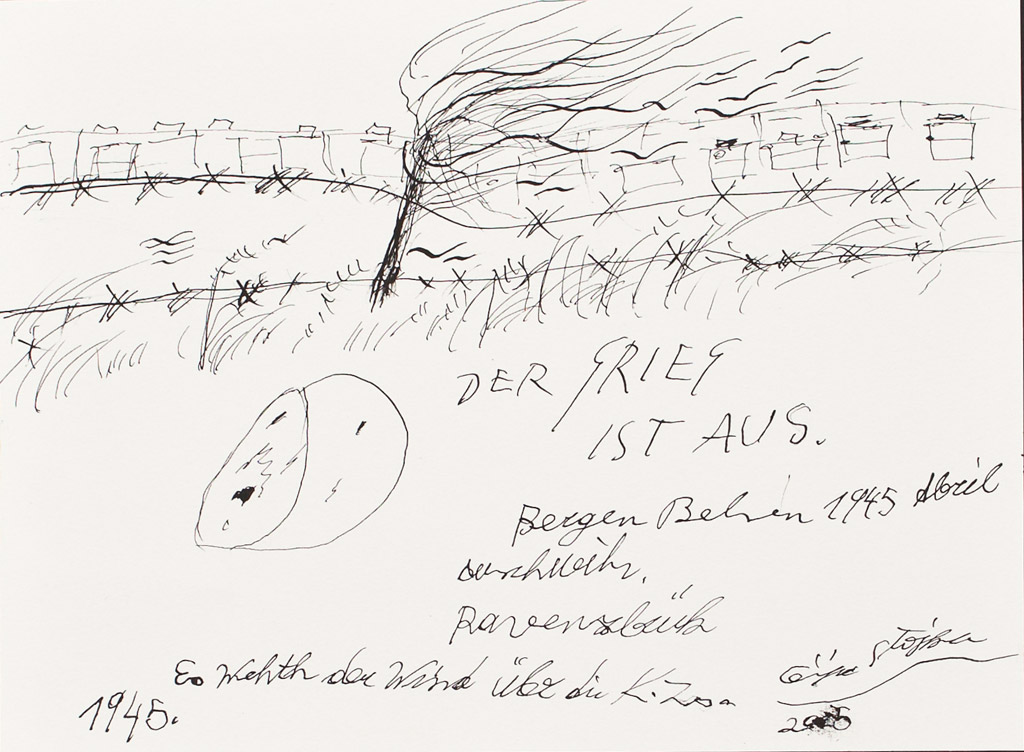 DER GRIEG
IST AUS.
Bergen Belsen 1945 Abril
auschwihz.
Ravensbük
Es wehth der Wind über die K.Zs
1945.
Ceija Stojka
2005